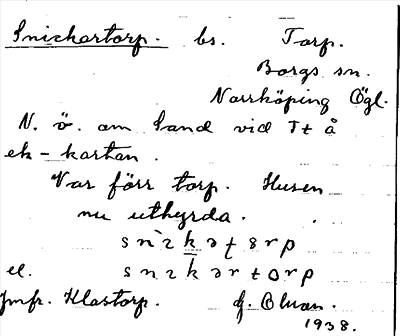 Snickartorp. bs. Torp.
Borgs sn.
Norrköping Ögl.
N. ö. om Sand vid It å
ek-kartan.
Var förr torp. Husen
nu uthyrda.
snikat
el. snikartorp
Jmfr. Klastorp.
1938.